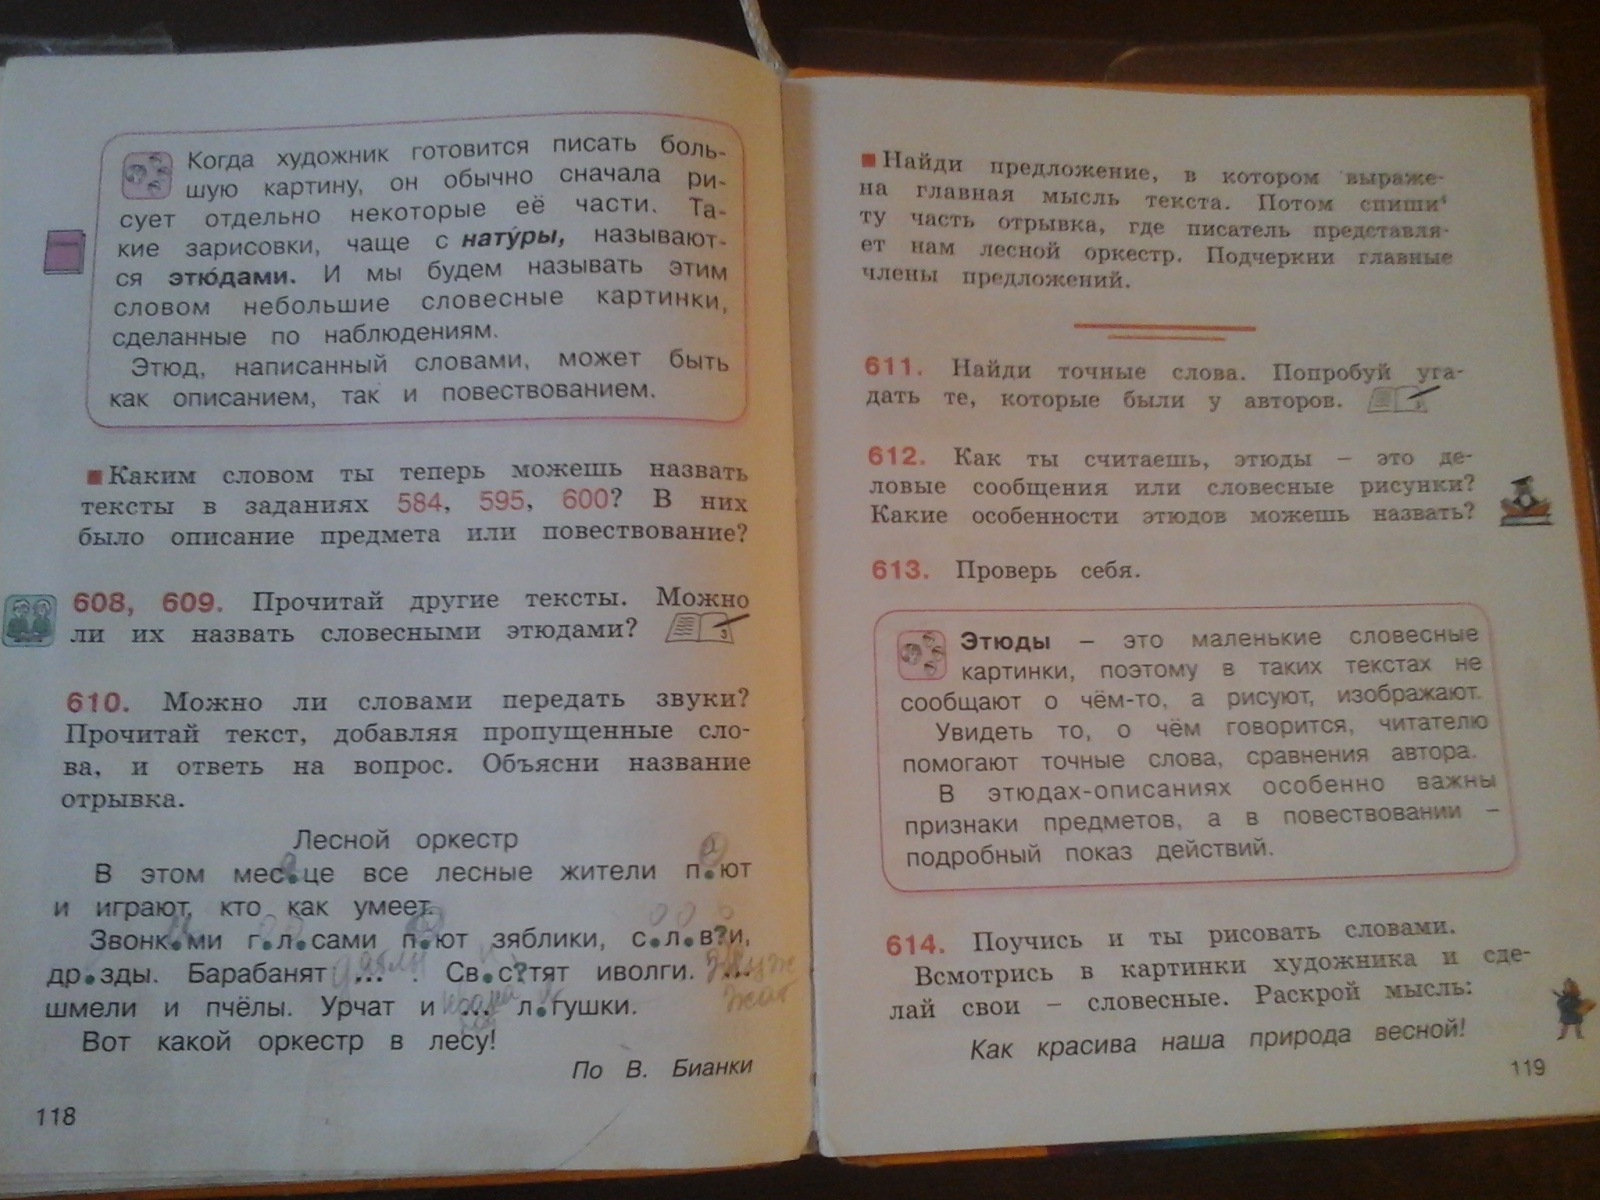 Когда художник готовится писать боль-
шую картину, он обычно сначала ри-
сует отдельно некоторые её части. Та-
кие зарисовки, чаще с нату́ры, называют-
ся этю́дами. И мы будем называть этим
словом небольшие словесные картинки,
сделанные по наблюдениям.
Этюд, написанный словами, может быть
как описанием, так и повествованием.
Каким словом ты теперь можешь назвать
тексты в заданиях 584, 595, 600? В них
было описание предмета или повествование?
608, 609. Прочитай другие тексты. Можно
ли их назвать словесными этюдами?
3
610. Можно ли словами передать звуки?
Прочитай текст, добавляя пропущенные сло-
ва, и ответь на вопрос. Объясни название
отрывка.
Лесной оркестр
В этом мес.це все лесные жители п.ют
и играют, кто как умеет.
Звонк.ми г.л.сами п.ют зяблики, с.л.в?и,
др.зды. Барабанят ... . Св.с?тят иволги. ...
шмели и пчёлы. Урчат и ... л.гушки.
Вот какой оркестр в лесу!
По В. Бианки
118
Найди предложение, в котором выраже-
на главная мысль текста. Потом спиши
ту часть отрывка, где писатель представля-
ет нам лесной оркестр. Подчеркни главные
члены предложений.
611. Найди точные слова. Попробуй уга-
дать те, которые были у авторов.
612. Как ты считаешь, этюды – это де-
ловые сообщения или словесные рисунки?
Какие особенности этюдов можешь назвать?
613. Проверь себя.
Этюды – это маленькие словесные
картинки, поэтому в таких текстах не
сообщают о чём-то, а рисуют, изображают.
Увидеть то, о чём говорится, читателю
помогают точные слова, сравнения автора.
В этюдах-описаниях особенно важны
признаки предметов, а в повествовании –
подробный показ действий.
614. Поучись и ты рисовать словами.
Всмотрись в картинки художника и сде-
лай свои – словесные. Раскрой мысль:
Как красива наша природа весной!
119